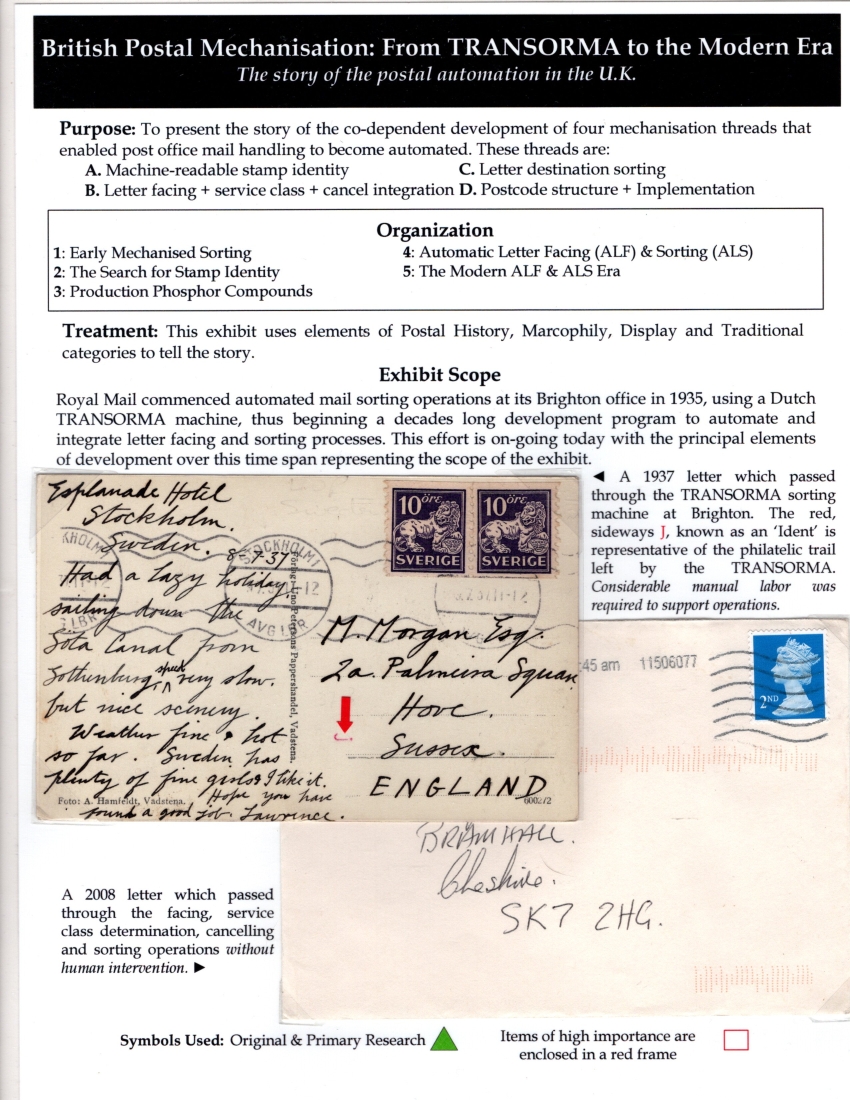 British Postal Mechanisation: From TRANSORMA to the Modern Era
The story of the postal automation in the U.K.
Purpose: To present the story of the co-dependent development of four mechanisation threads that
enabled post office mail handling to become automated. These threads are:
A. Machine-readable stamp identity
C. Letter destination sorting
B. Letter facing + service class + cancel integration
D. Postcode structure + Implementation
Organization
1: Early Mechanised Sorting
2: The Search for Stamp Identity
3: Production Phosphor Compounds
4: Automatic Letter Facing (ALF) & Sorting (ALS)
5: The Modern ALF & ALS Era
Treatment: This exhibit uses elements of Postal History, Marcophily, Display and Traditional
categories to tell the story.
Exhibit Scope
Royal Mail commenced automated mail sorting operations at its Brighton office in 1935, using a Dutch
TRANSORMA machine, thus beginning a decades long development program to automate and
integrate letter facing and sorting processes. This effort is on-going today with the principal elements
of development over this time span representing the scope of the exhibit.
◄ A 1937 letter which passed
through the TRANSORMA sorting
machine at Brighton. The red,
sideways J, known as an 'Ident' is
representative of the philatelic trail
left by the TRANSORMA.
Considerable manual labor was
required to support operations.
Esplanade Hotel
Stockholm.
Sweden. 8-7-37
Had a lazy holiday,
sailing down the
Gota Canal from
Gothenburg speed very slow.
but nice scenery.
Weather fine & hot
so far. Sweden has
plenty of fine girls & I like it.
Hope you have
found a good job. Lawrence.
Foto: A. Hamfeldt, Vadstena.
Pappershandel, Vadstena.
STOCKHOLM 1
AVG LBR
10 öre
SVERIGE
10 öre
SVERIGE
M. Morgan Esq.
2a. Palmeira Square
Hove.
Sussex.
ENGLAND
600272
:45 am 11506077
2ND
BRAMHALL.
Cheshire.
SK7 2HG.
A 2008 letter which passed
through the facing, service
class determination, cancelling
and sorting operations without
human intervention. ►
Symbols Used: Original & Primary Research
Items of high importance are
enclosed in a red frame